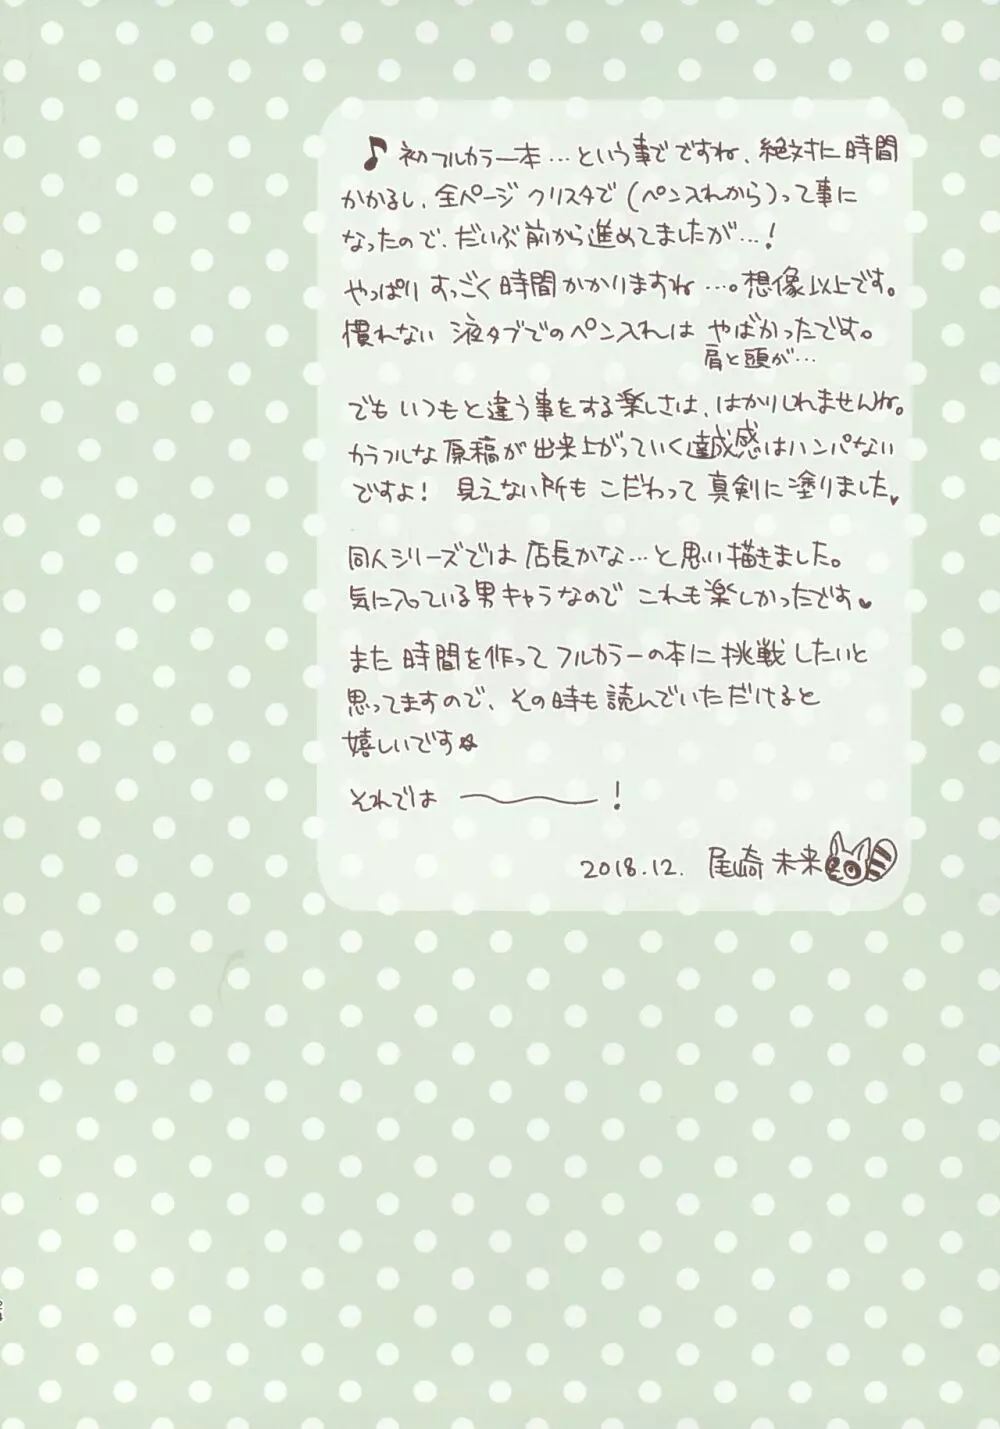 ♪初フルカラー本…という事でですね、絶対に時間
かかるし、全ページクリスタで(ペン入れから)って事に
なったので、だいぶ前から進めてましたが…!
やっぱりすっごく時間かかりますね…。想像以上です。
慣れない液タブでのペン入れはやばかったです。
肩と頭が…
でもいつもと違う事をする楽しさは、はかりしれませんね。
カラフルな原稿が出来上がっていく達成感はハンパない
ですよ! 見えない所もこだわって真剣に塗りました♥
同人シリーズでは店長かな…と思い描きました。
気に入っている男キャラなのでこれも楽しかったです♥
また時間を作ってフルカラーの本に挑戦したいと
思ってますので、その時も読んでいただけると
嬉しいです☆
それでは〜〜〜!
2018.12. 尾崎未来
24